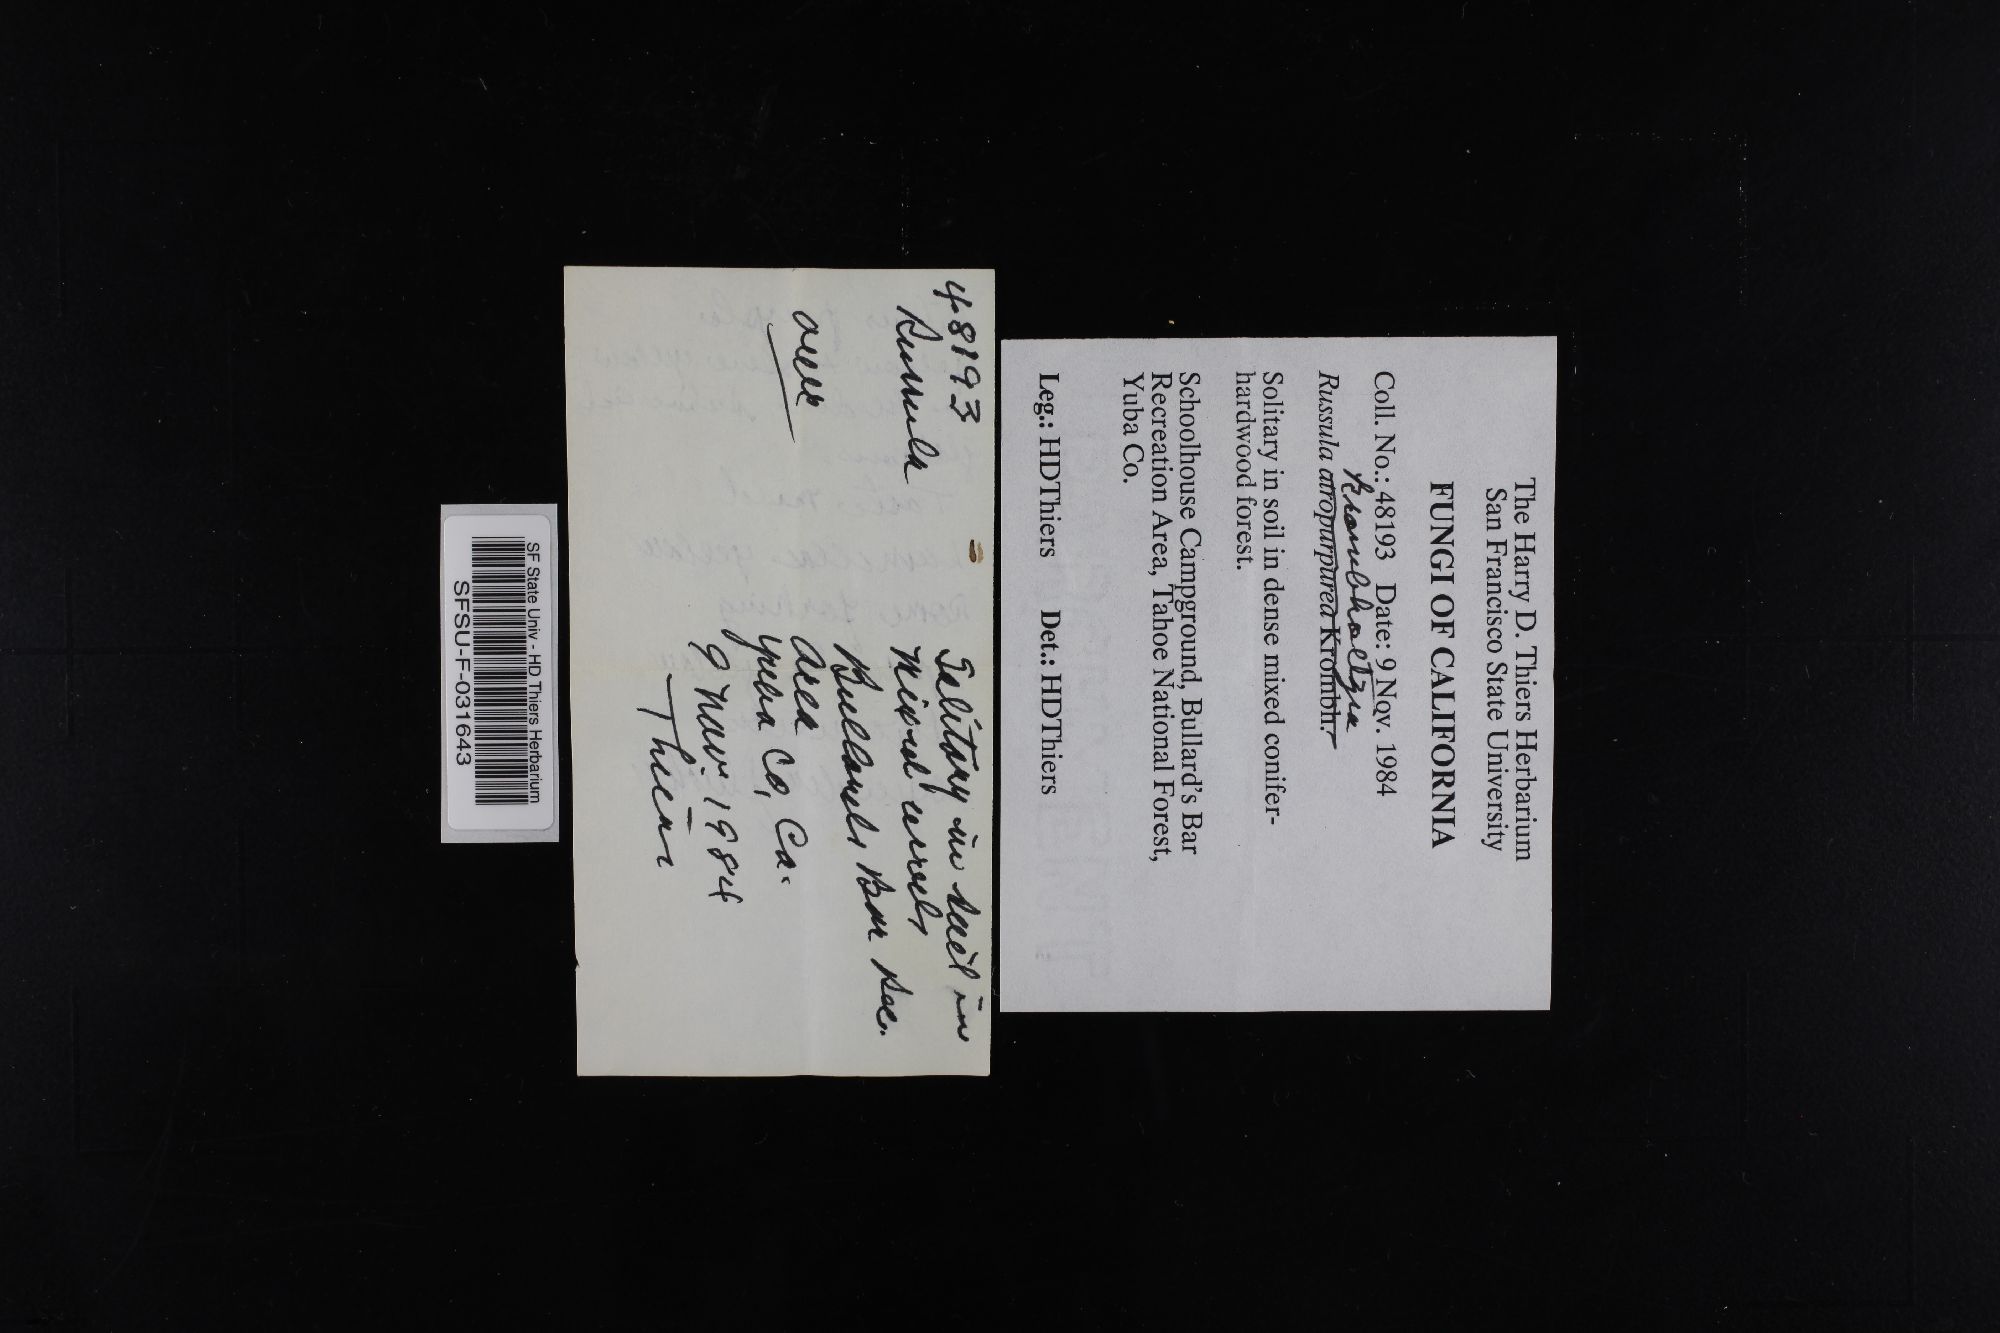 The Harry D. Thiers Herbarium
San Francisco State University
FUNGI OF CALIFORNIA
Coll. No.: 48193 Date: 9 Nov. 1984
krombholtzia
Russula atropurpurea Krombhr.
Solitary in soil in dense mixed conifer-
hardwood forest.
Schoolhouse Campground, Bullard's Bar
Recreation Area, Tahoe National Forest,
Yuba Co.
Leg.: HDThiers Det.: HDThiers
48193
Russula
over
Solitary in soil in
mixed woods
Bullards Bar Rec.
Area
Yuba Co, Ca.
9 Nov. 1984
Thiers
SF State Univ - HD Thiers Herbarium
SFSU-F-031643